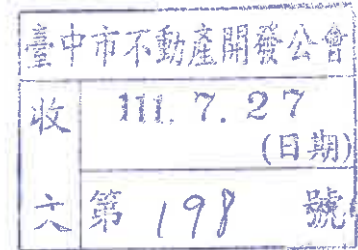 臺中市不動產開發公會
收文
111. 7. 27
(日期)
第 198 號